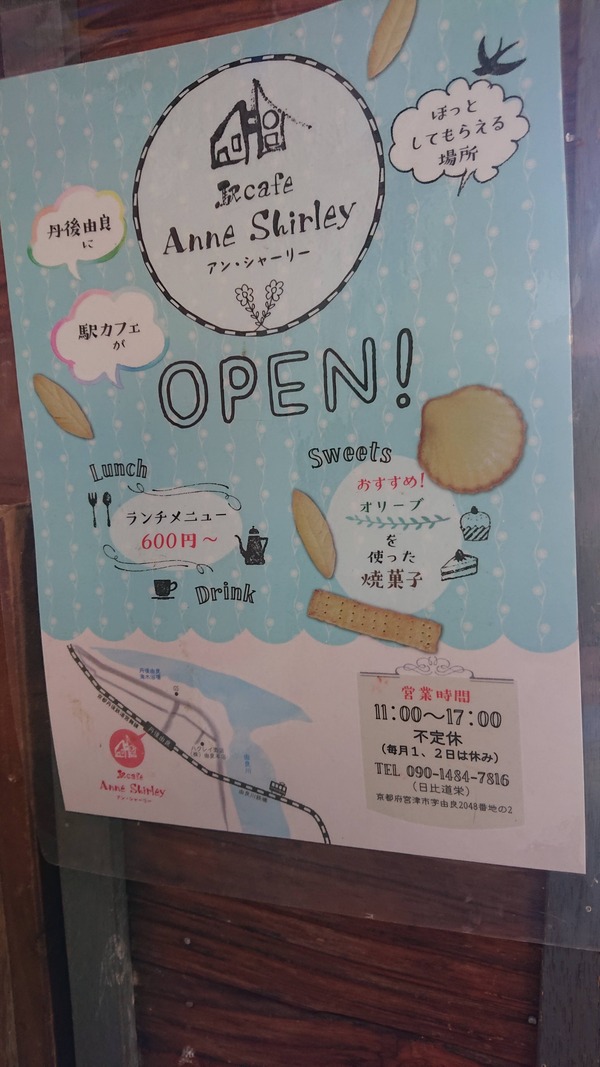 ほっと
してもらえる
場所
駅cafe
Anne Shirley
アン・シャーリー
丹後由良
に
駅カフェ
が
OPEN!
Lunch
ランチメニュー
600円～
Drink
Sweets
おすすめ!
オリーブ
を
使った
焼菓子
丹後由良
海水浴場
丹後由良
由良川
由良川鉄橋
駅cafe
Anne Shirley
アン・シャーリー
営業時間
11:00～17:00
不定休
(毎月1、2日は休み)
TEL 090-1484-7816
(日比道栄)
京都府宮津市字由良2048番地の2